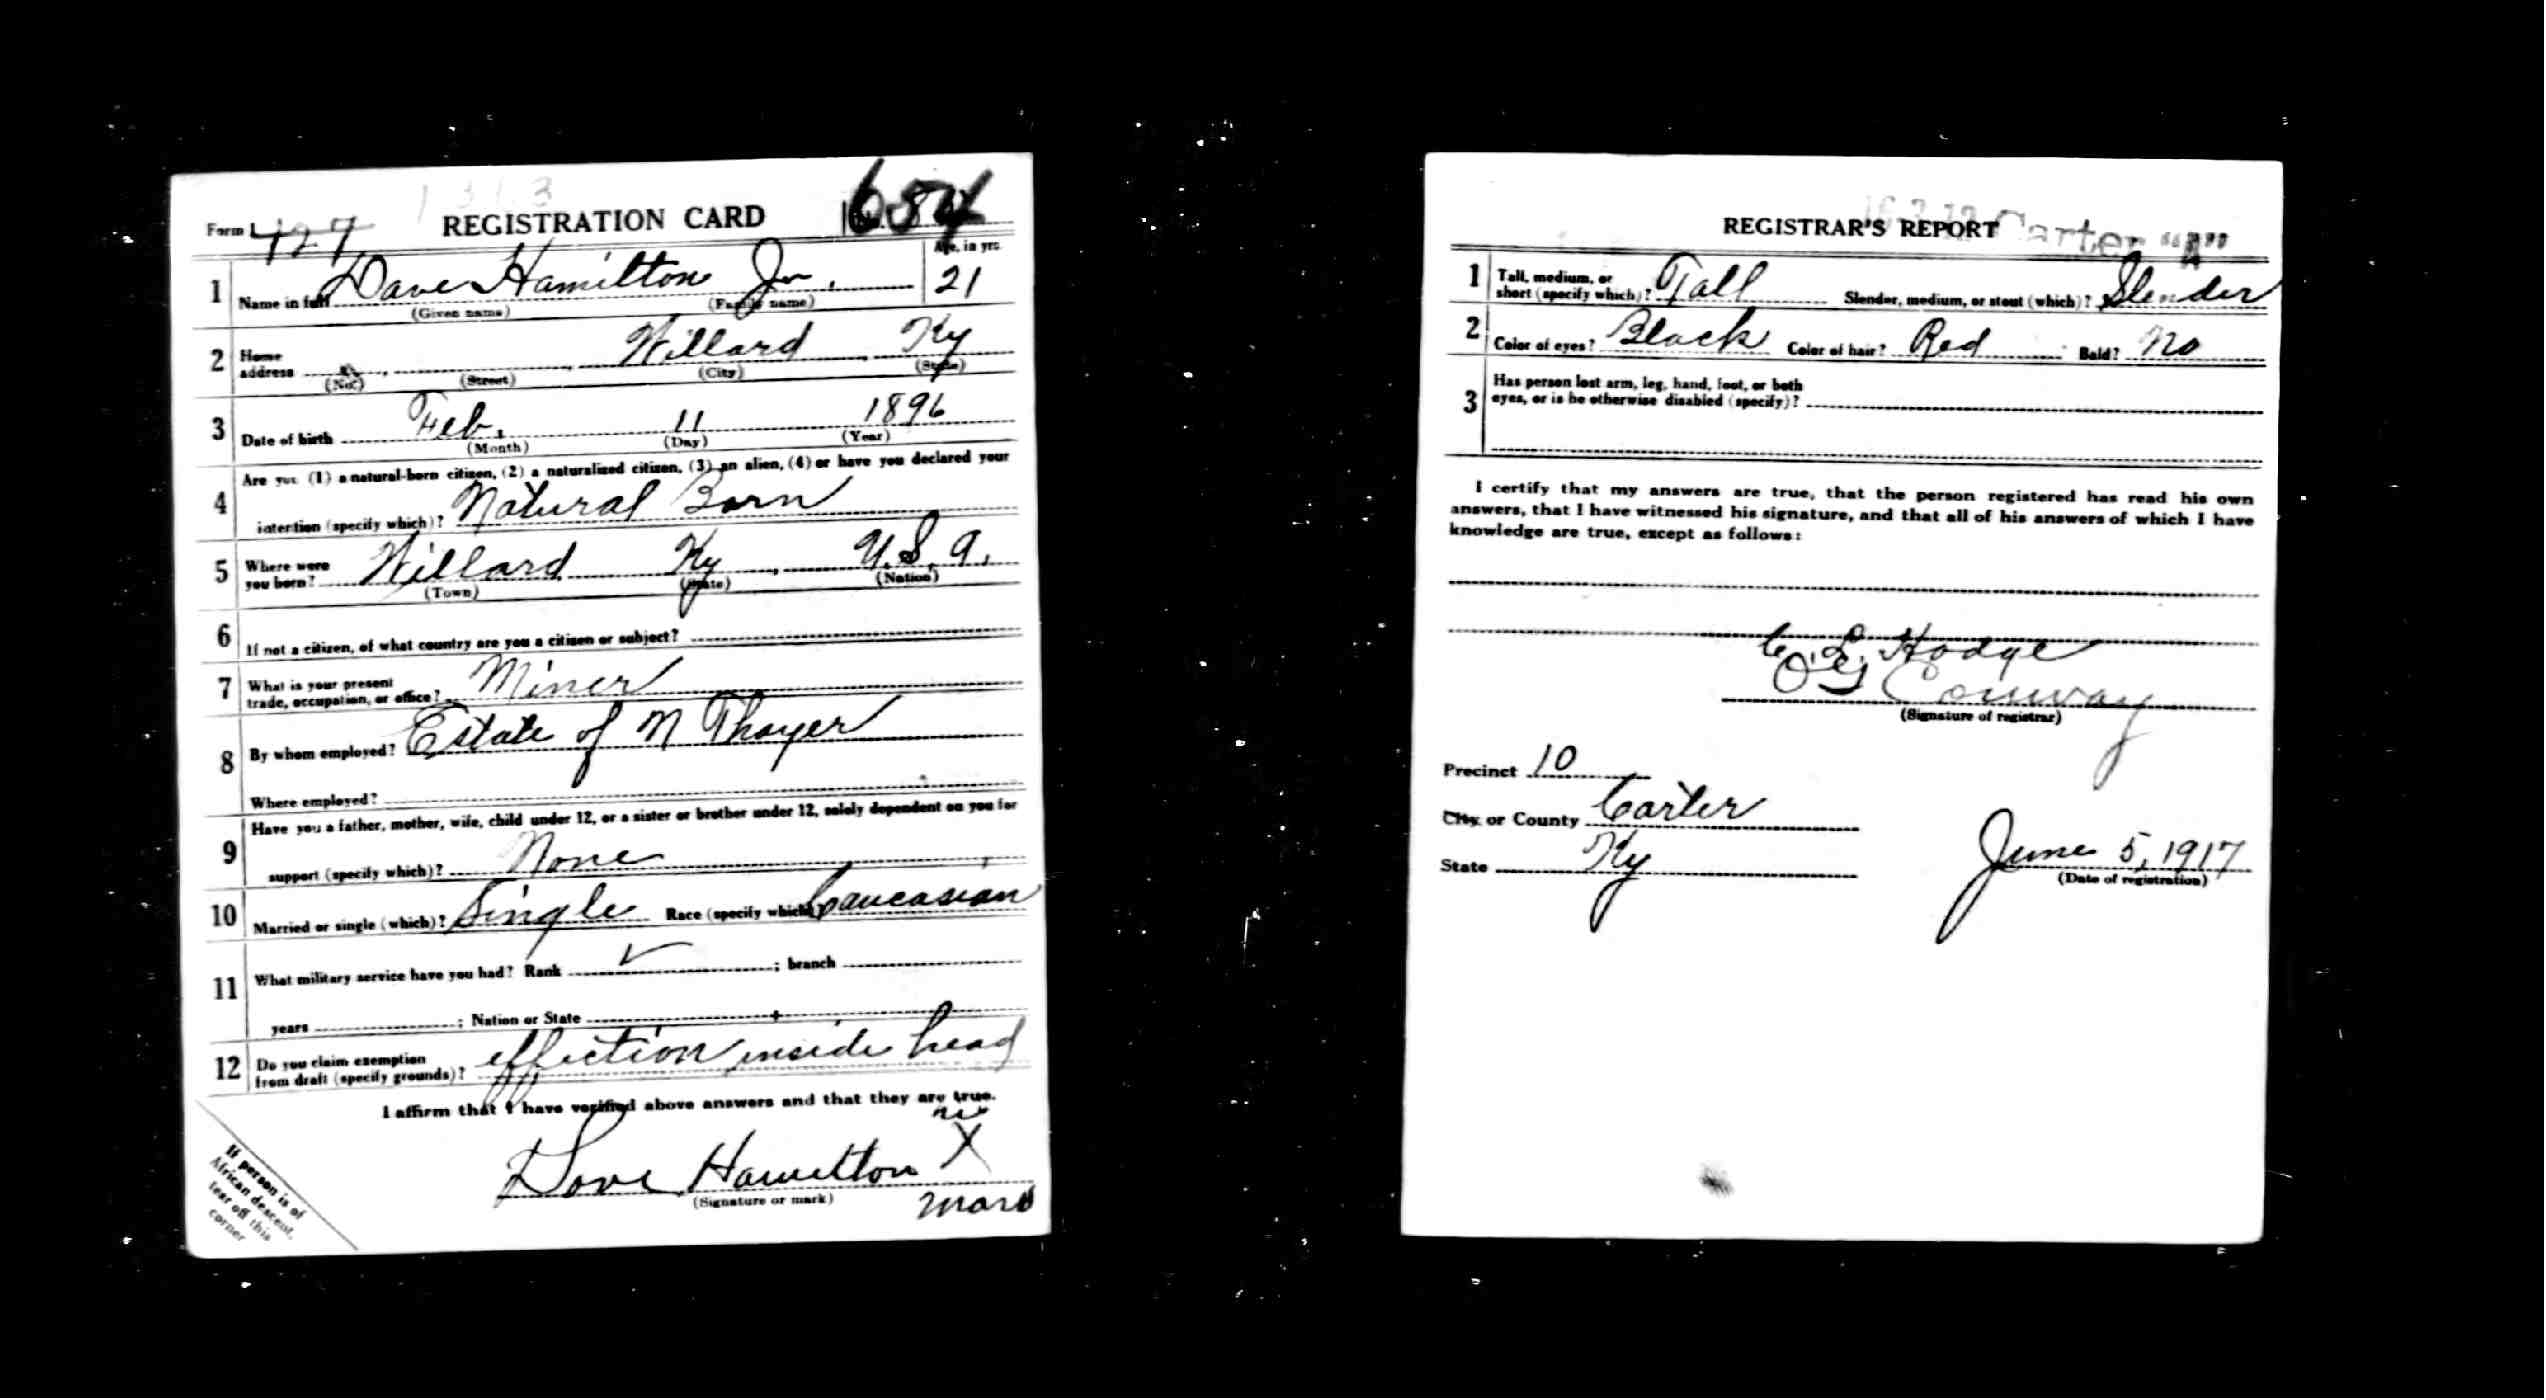 1313
Form 1 427 REGISTRATION CARD No. 654
Age, in yrs.
1 Name in full Dave Hamilton Jr. 21
(Given name) (Family name)
2 Home address Willard Ky
(No.) (Street) (City) (State)
3 Date of birth Feb. 11 1896
(Month) (Day) (Year)
4 Are you (1) a natural-born citizen, (2) a naturalized citizen, (3) an alien, (4) or have you declared your
intention (specify which)? Natural Born
5 Where were you born? Willard Ky U.S.A.
(Town) (State) (Nation)
6 If not a citizen, of what country are you a citizen or subject?
7 What is your present trade, occupation, or office? Miner
8 By whom employed? Estate of N Thayer
Where employed?
9 Have you a father, mother, wife, child under 12, or a sister or brother under 12, solely dependent on you for
support (specify which)? None
10 Married or single (which)? Single Race (specify which)? Caucasian
11 What military service have you had? Rank ; branch
years ; Nation or State
12 Do you claim exemption from draft (specify grounds)? effiction inside head
I affirm that I have verified above answers and that they are true.
Dave Hamilton X
(Signature or mark) mark
If person is of
African descent,
tear off this
corner
REGISTRAR'S REPORT Carter "A"
1 Tall, medium, or short (specify which)? Tall Slender, medium, or stout (which)? Slender
2 Color of eyes? Black Color of hair? Red Bald? No
3 Has person lost arm, leg, hand, foot, or both
eyes, or is he otherwise disabled (specify)?
I certify that my answers are true, that the person registered has read his own
answers, that I have witnessed his signature, and that all of his answers of which I have
knowledge are true, except as follows:
C. L. Hodge
O. G. Conway
(Signature of registrar)
Precinct 10
City or County Carter
State Ky June 5, 1917
(Date of registration)